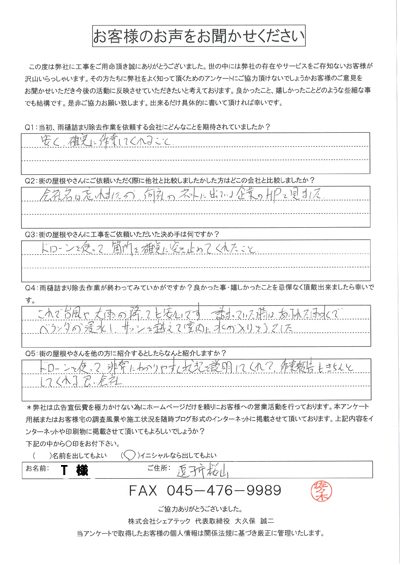 お客様のお声をお聞かせください
この度は弊社に工事をご用命頂き誠にありがとうございました。世の中には弊社の存在やサービスをご存知ないお客様が
沢山いらっしゃいます。その方たちに弊社をよく知って頂くためのアンケートにご協力頂けないでしょうかお客様のご意見を
お聞かせいただき今後の活動に反映させていただきたいと考えております。良かったこと、嬉しかったことどのような些細な事
でも結構です。是非ご協力お願い致します。出来るだけ具体的に書いて頂ければ幸いです。
Q1:当初、雨樋詰まり除去作業を依頼する会社にどんなことを期待されていましたか?
安く、確実に作業してくれること
Q2:街の屋根やさんにご依頼いただく際に他社と比較しましたかした方はどこの会社と比較しましたか?
会社名は忘れましたの 何社の ネットに出ている企業のHPを見ました
Q3:街の屋根やさんに工事をご依頼いただいた決め手は何ですか?
ドローンを使って、箇所を確実に突き止めてくれたこと
Q4:雨樋詰まり除去作業が終わってみていかがですか?良かった事・嬉しかったことを忌憚なく頂戴出来ましたら幸いで
す。
これで台風や大雨の際でも安心です
ベランダが浸水し、サッシを越えて室内に水が入りそうでした
Q5:街の屋根やさんを他の方に紹介するとしたらなんと紹介しますか?
ドローンを使って、非常にわかりやすく状況を説明してくれて、作業報告もきちんと
してくれる良い会社
*弊社は広告宣伝費を極力かけない為にホームページだけを頼りにお客様への営業活動を行っております。本アンケート
用紙またはお客様宅の調査風景や施工状況を随時ブログ形式のインターネットに掲載させて頂いております。上記内容をイ
ンターネットや印刷物に掲載させて頂いてもよろしいでしょうか?
下記の中から〇印をお付下さい。
( )名前を出してもよい ( )イニシャルなら出してもよい
お名前: T 様 ご住所: 逗子市桜山
FAX 045-476-9989
ご協力ありがとうございました。
株式会社シェアテック 代表取締役 大久保 誠二
当アンケートで取得したお客様の個人情報は関係法規に基づき厳正に管理いたします。
佐々木